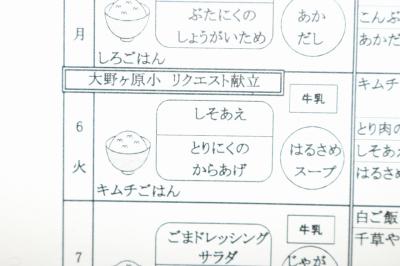 月
ぶたにくの
しょうがいため
あか
だし
しろごはん
こんぶ
あかだ
大野ヶ原小 リクエスト献立
牛乳
キムチ
6
火
しそあえ
とりにくの
からあげ
はるさめ
スープ
キムチごはん
とり肉の
しそあえ
はるさめ
7
ごまドレッシング
サラダ
牛乳
じゃが
白ご飯
千草や